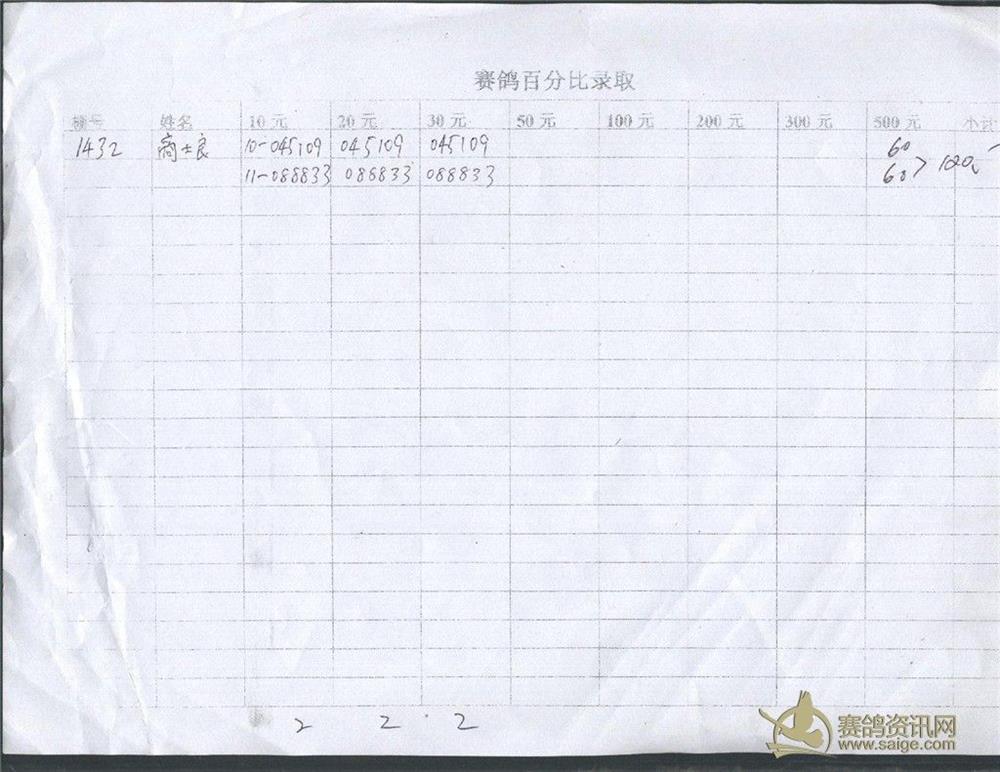 赛鸽百分比录取
棚号 姓名 10元 20元 30元 50元 100元 200元 300元 500元 小计
1432 商士良 10-045109 045109 045109 60
11-088833 088833 088833 60 > 120
2 2 2
赛鸽资讯网
www.saige.com